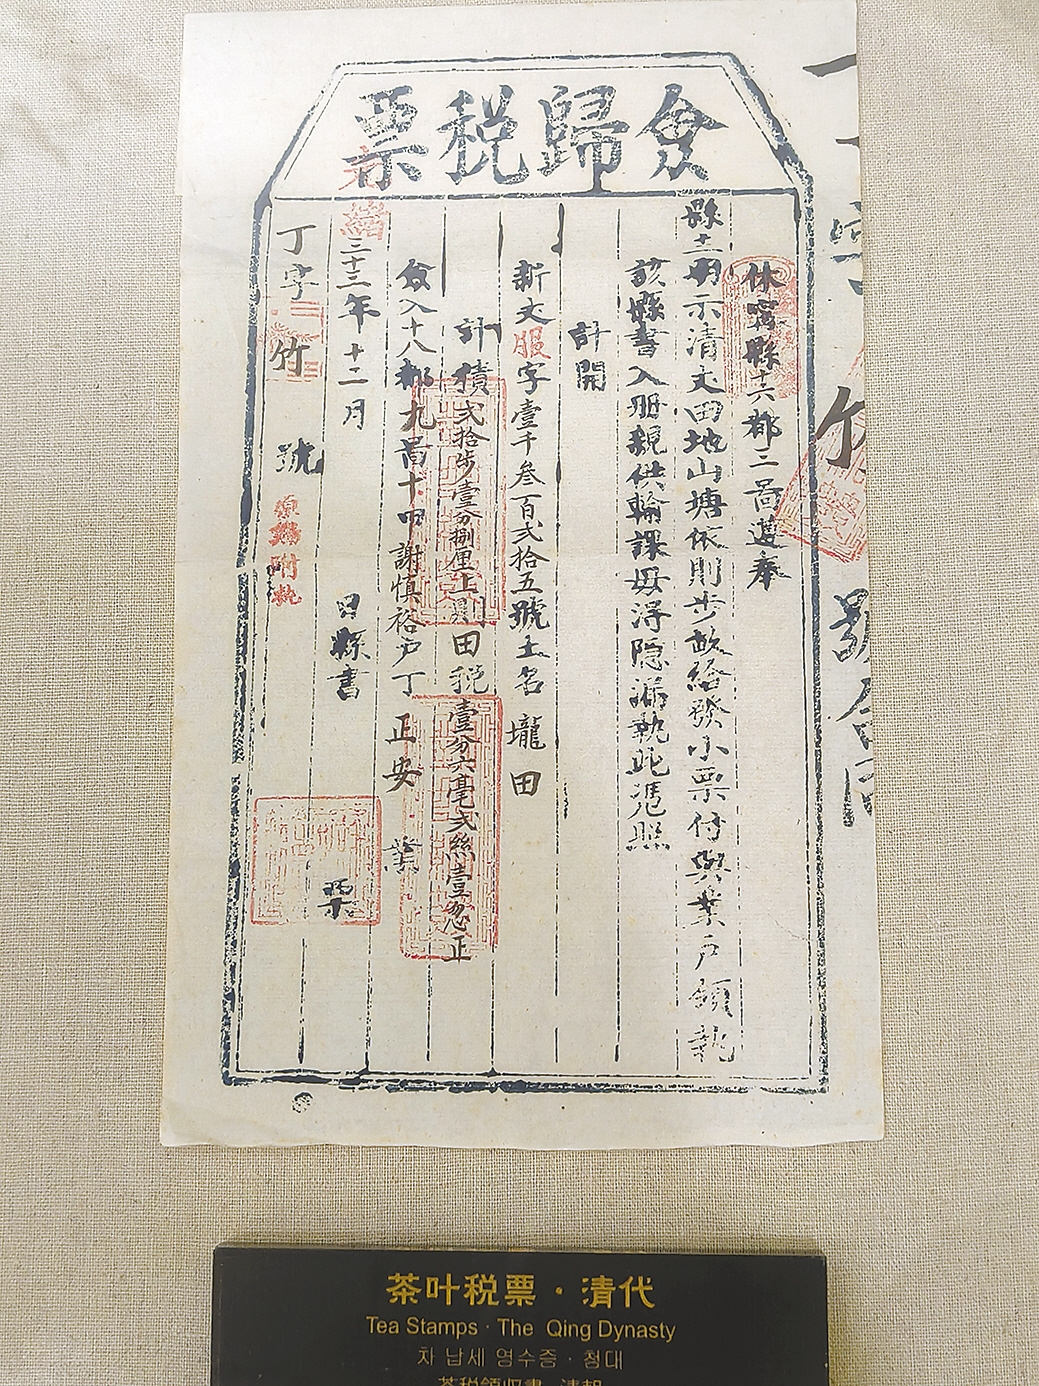 僉歸税票
休寧縣十六都三啚遵奉
縣主明示清丈田地山塘依則步畝給發小票付與業戶領執
該縣書入册親供輪課毋得隐漏執此凴照
計開
新丈服字壹千叁百弍拾五號土名壠田
計積弍拾步壹分捌厘上則田税壹分六毫弍絲壹忽正
僉入十八都九啚十甲謝慎裕户丁正安業
光緒三十三年十二月日縣書票
丁字竹號
茶叶税票·清代
Tea Stamps · The Qing Dynasty
차 납세 영수증 · 청대